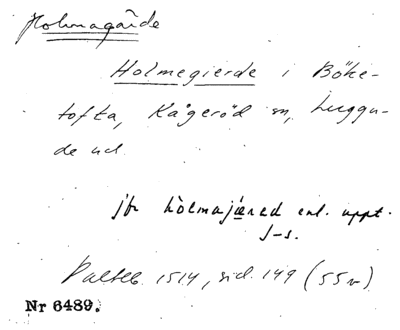 Holmagärde
Holmegierde i Böke-
tofta, Kågeröd sn, Luggu-
de hd.
jfr hòlmajæred enl. uppt.
J-s.
Palteb. 1514, sid. 149 (55v)
Nr 6489.